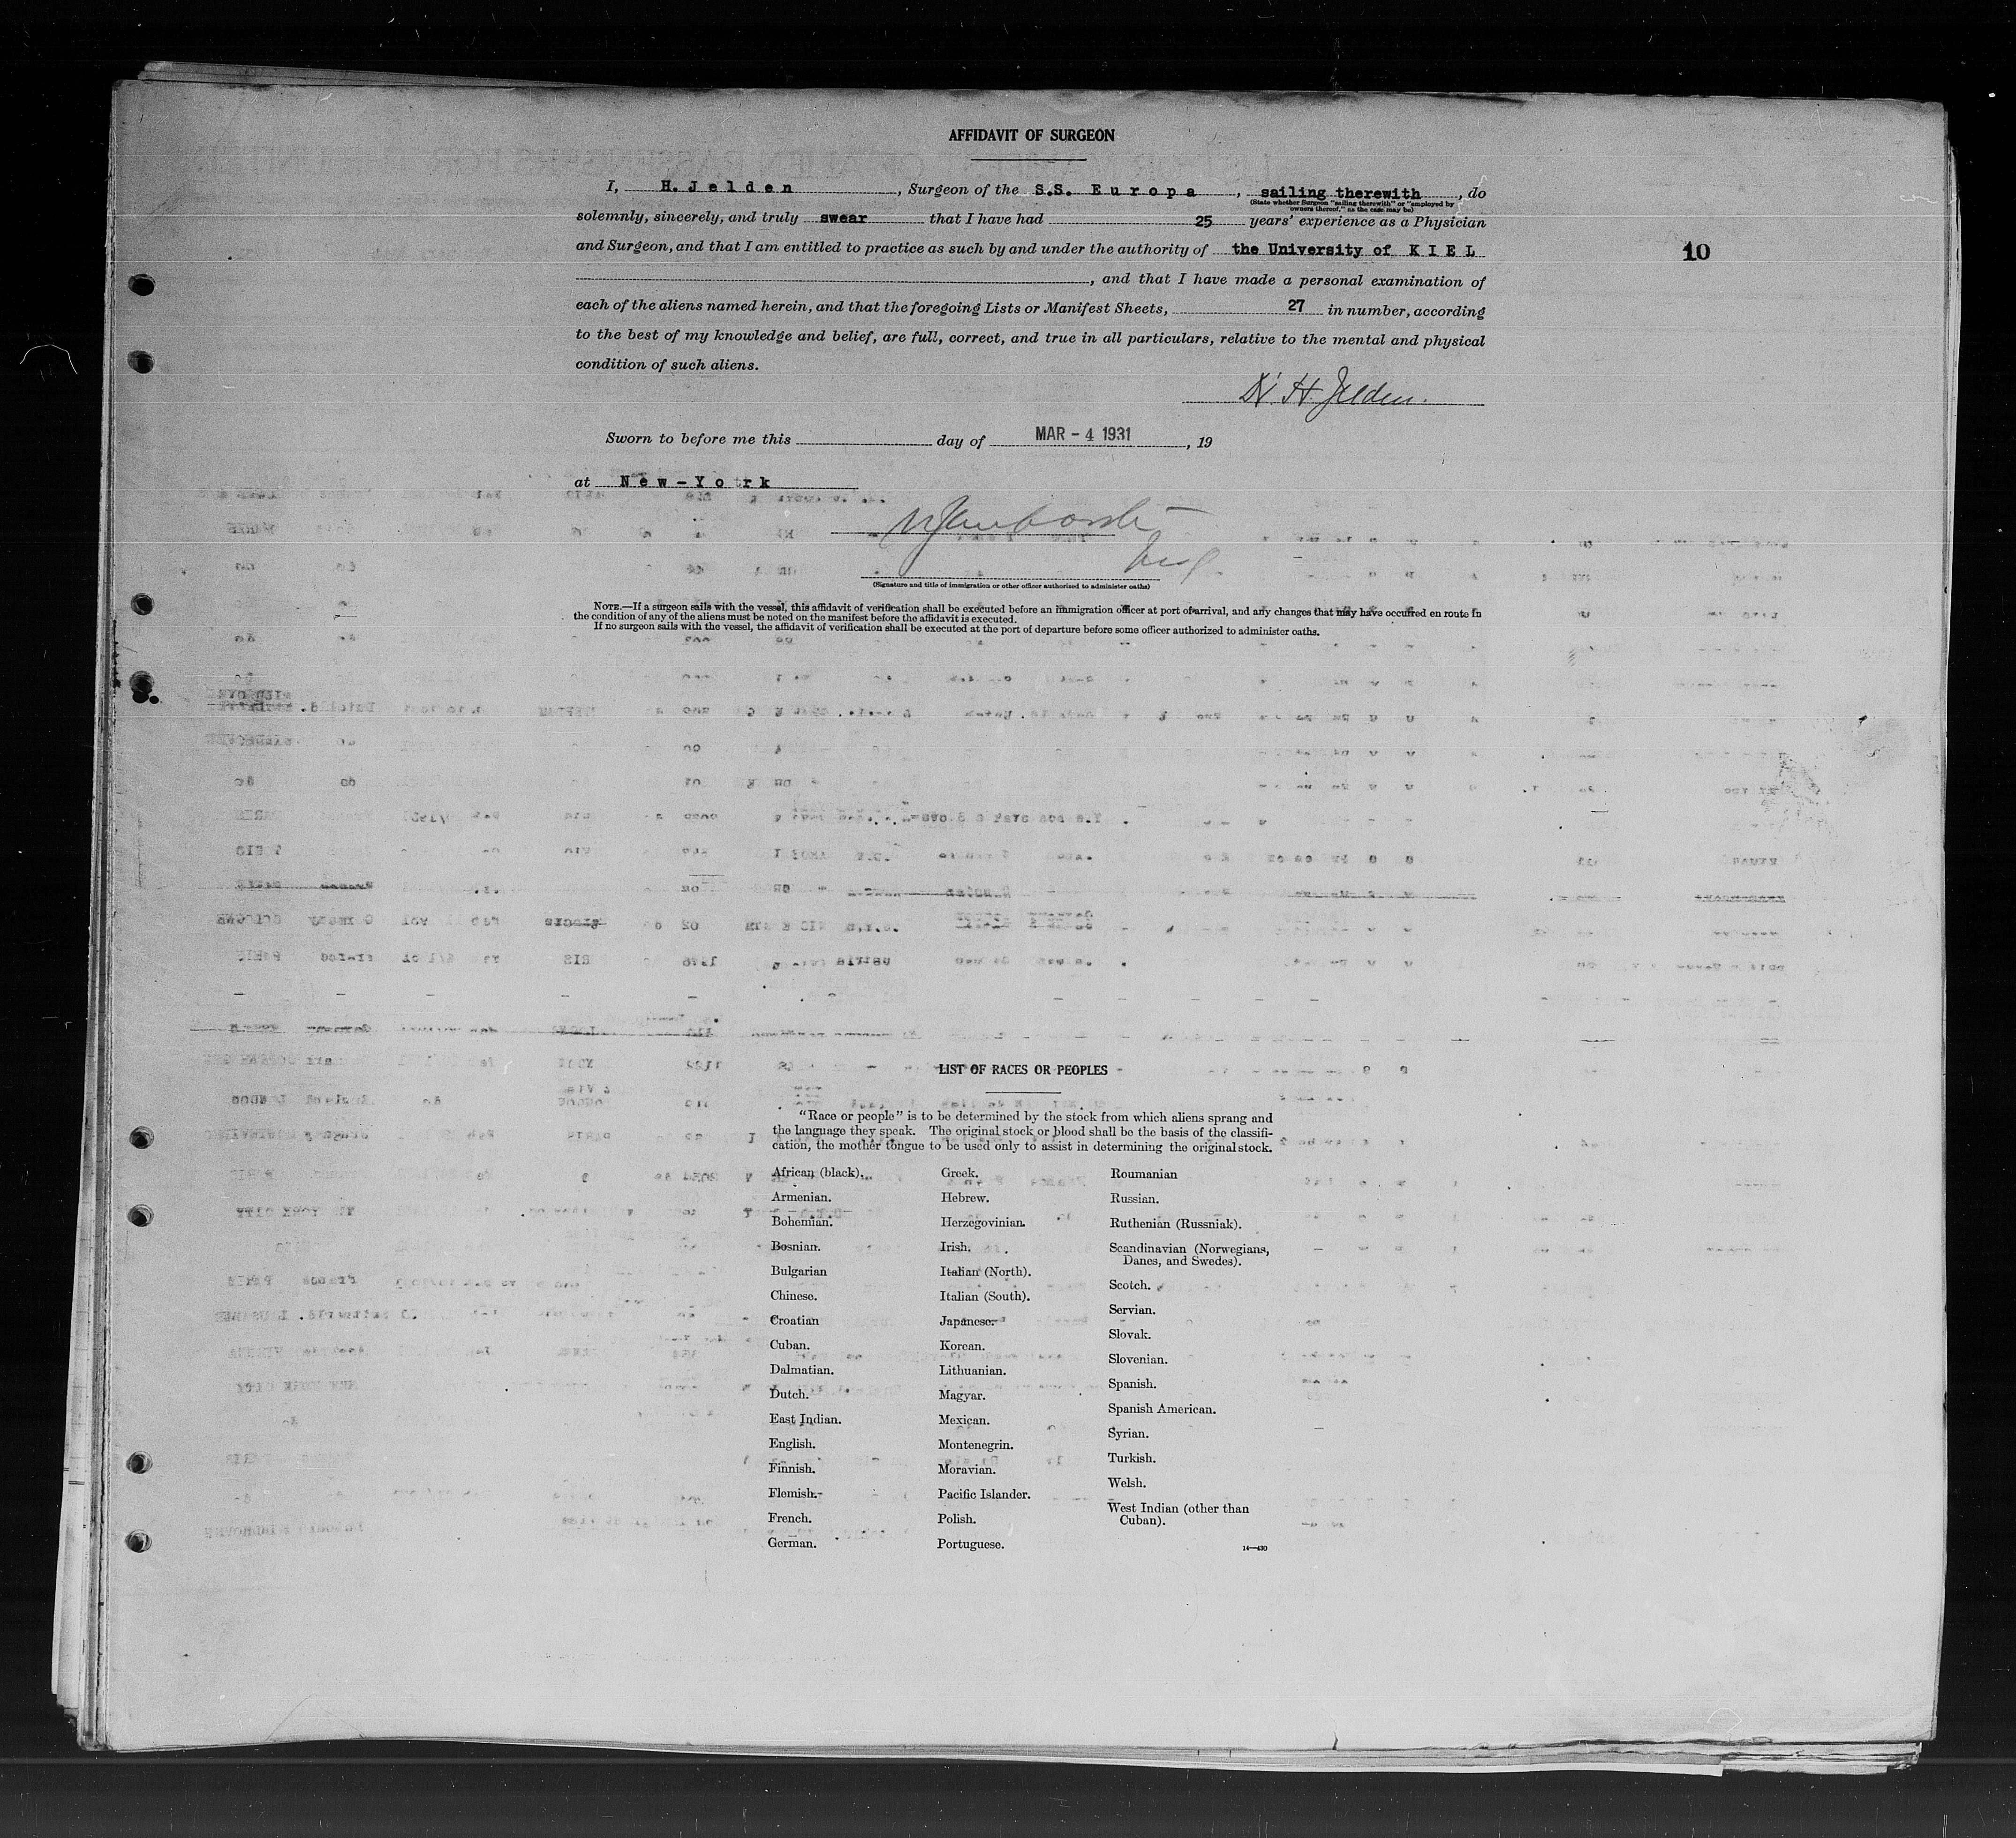 AFFIDAVIT OF SURGEON
I, H. Jelden, Surgeon of the S.S. Europa, sailing therewith, do
(State whether Surgeon "sailing therewith" or "employed by
owners thereof," as the case may be)
solemnly, sincerely, and truly swear that I have had 25 years' experience as a Physician
and Surgeon, and that I am entitled to practice as such by and under the authority of the University of KIEL
10
, and that I have made a personal examination of
each of the aliens named herein, and that the foregoing Lists or Manifest Sheets, 27 in number, according
to the best of my knowledge and belief, are full, correct, and true in all particulars, relative to the mental and physical
condition of such aliens.
Dr. H. Jelden.
Sworn to before me this day of MAR - 4 1931, 19
at New-York
(Signature and title of immigration or other officer authorized to administer oaths)
NOTE.—If a surgeon sails with the vessel, this affidavit of verification shall be executed before an immigration officer at port of arrival, and any changes that may have occurred en route in
the condition of any of the aliens must be noted on the manifest before the affidavit is executed.
If no surgeon sails with the vessel, the affidavit of verification shall be executed at the port of departure before some officer authorized to administer oaths.
LIST OF RACES OR PEOPLES
"Race or people" is to be determined by the stock from which aliens sprang and
the language they speak. The original stock or blood shall be the basis of the classifi-
cation, the mother tongue to be used only to assist in determining the original stock.
African (black).
Armenian.
Bohemian.
Bosnian.
Bulgarian
Chinese.
Croatian
Cuban.
Dalmatian.
Dutch.
East Indian.
English.
Finnish.
Flemish.
French.
German.
Greek.
Hebrew.
Herzegovinian.
Irish.
Italian (North).
Italian (South).
Japanese.
Korean.
Lithuanian.
Magyar.
Mexican.
Montenegrin.
Moravian.
Pacific Islander.
Polish.
Portuguese.
Roumanian
Russian.
Ruthenian (Russniak).
Scandinavian (Norwegians,
Danes, and Swedes).
Scotch.
Servian.
Slovak.
Slovenian.
Spanish.
Spanish American.
Syrian.
Turkish.
Welsh.
West Indian (other than
Cuban).
14—430